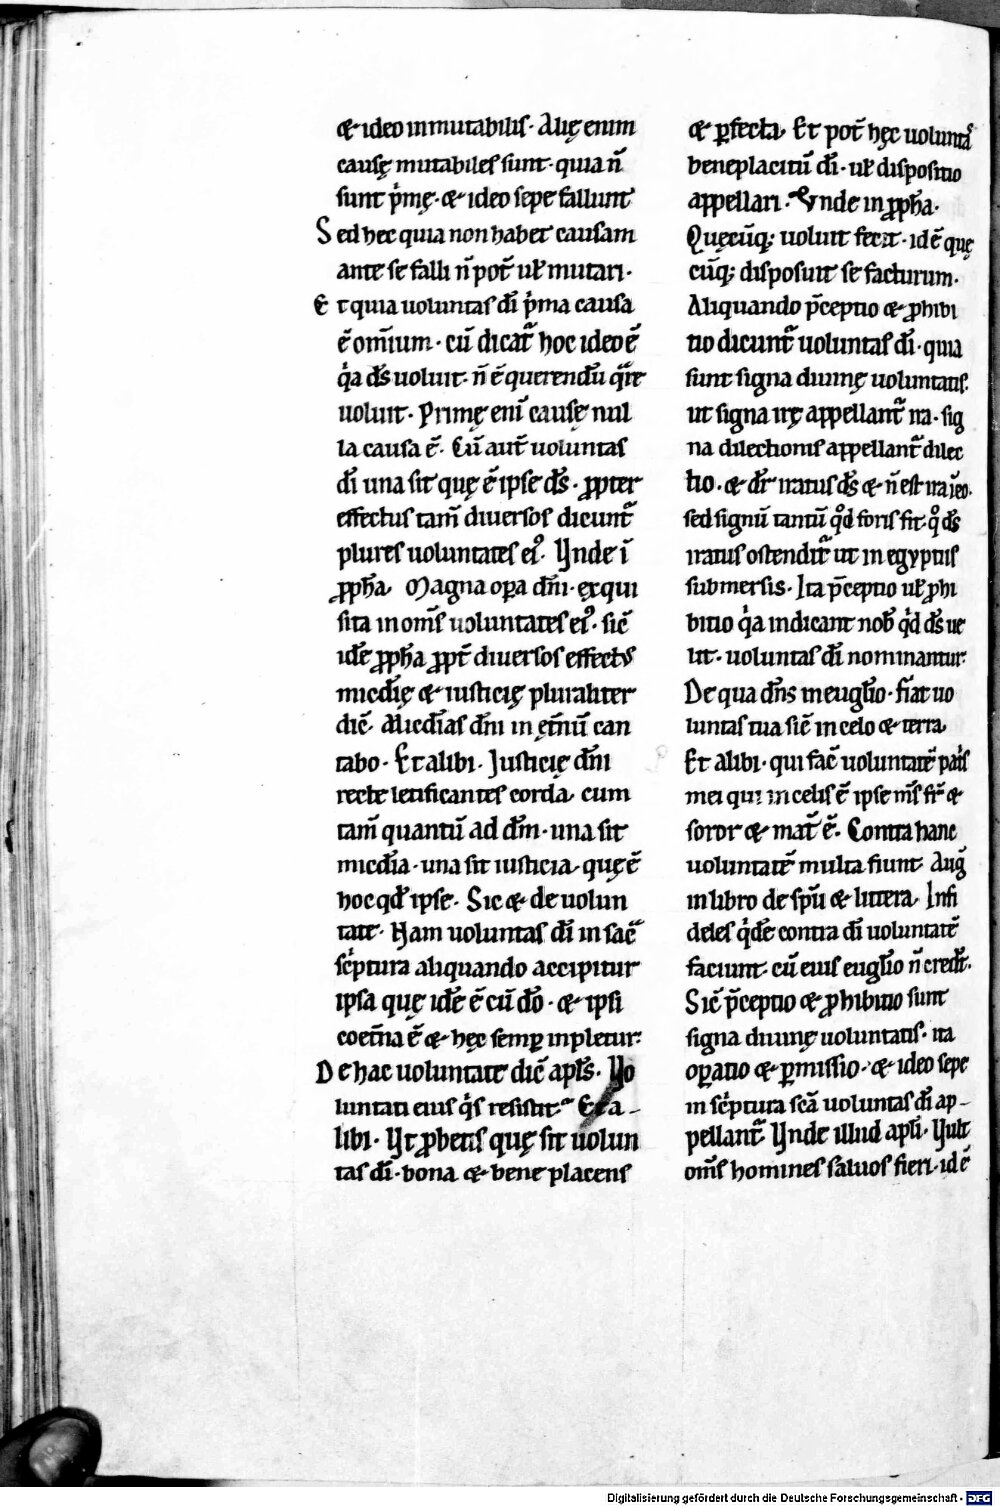 & ideo inmutabilis. Alię enim
causę mutabiles sunt. quia n̄
sunt p̍mę. & ideo sepe fallunt
Sed hec quia non habet causam
ante se falli n̄ pot̄ ul̄ mutari.
Et quia uoluntas dī p̍ma causa
ē om̄ium. cū dicat᷑ hoc ideo ē
q̍a d̄s uoluit. n̄ ē querendū q̄re
uoluit. Primę enī causę nul
la causa ē. Cū aut̄ uoluntas
dī una sit quę ē ipse d̄s. ꝓpter
effectus tam̄ diuersos dicunt᷑
plures uoluntates ei᾿. Vnde ī
ꝓph̄a. Magna oꝑa dn̄i. exqui
sita in om̄s uoluntates ei᾿. sic̄
idē ꝓph̄a ꝓpt̄ diuersos effectus
mic̄dię & iusticię pluraliter
dic̄. Mic̄dias dn̄i in et̄nū can
tabo. Et alibi. Justicię dn̄i
recte letificantes corda. cum
tam̄ quantū ad dm̄. una sit
mic̄dia. una sit iusticia. quę ē
hoc qd̄ ipse. Sic & de uolun
tate. Nam uoluntas dī in sac̄
sc̍ptura aliquando accipitur
ipsa quę idē ē cū dō. & ipsi
coet̄na ē & hęc semꝑ inpletur.
De hac uoluntate dic̄ apl̄s. Vo
luntati eius q̍s resistit. Et a-
libi. Vt ꝓbetis quę sit uolun
tas dī. bona & bene placens
& ꝑfecta. Et pot̄ hęc uolunta᷒
beneplacitū dī. ul̄ dispositio
appellari. Vnde in ꝓph̄a.
Quęcūq; uoluit fecit. id ē quę
cūq; disposuit se facturum.
Aliquando p̄ceptio & ꝓhibi
tio dicunt᷑ uoluntas dī. quia
sunt signa diuinę uoluntatis.
ut signa irę appellant᷑ ira. sig
na dilectionis appellant᷑ dilec
tio. & dr̄ iratus d̄s & n̄ est ira ī eo.
sed signū tantū qd̄ foris fit. q° d̄s
iratus ostendit᷑ ut in egyptiis
submersis. Ita p̄ceptio ul̄ ꝓhi
bitio q̍a indicant nob̄ qd̍ d̄s ue
lit. uoluntas dī nominantur.
De qua dn̄s in euḡlio. fiat uo
luntas tua sic̄ in celo & terra.
Et alibi. qui fac̄ uoluntatē pat̍s
mei qui in celis ē ipse m̄s fr̄ &
soror & mat̄ ē. Contra hanc
uoluntatē multa fiunt. Auḡ
in libro de sp̄u & littera. Infi
deles q̍dē contra dī uoluntatē
faciunt. cū eius euḡlio n̄ credt̄.
Sic̄ p̄ceptio & ꝓhibitio sunt
signa diuinę uoluntatis. ita
oꝑatio & ꝑmissio. & ideo sepe
in sc̍ptura sc̄a uoluntas dī ap-
pellant᷑. Vnde illud apl̄i. Vult
om̄s homines saluos fieri. id ē
Digitalisierung gefördert durch die Deutsche Forschungsgemeinschaft - DFG